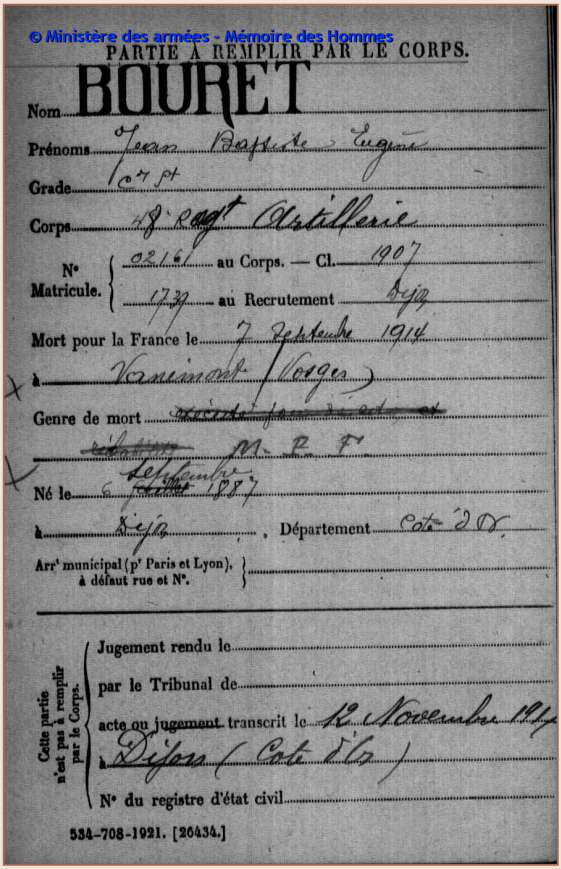 © Ministère des armées - Mémoire des Hommes
PARTIE À REMPLIR PAR LE CORPS.
Nom BOURET
Prénoms Jean Baptiste Eugène
Grade
Corps 48e Regt Artillerie
N° Matricule. { 02161 au Corps. — Cl. 1907
1737 au Recrutement Dijon
Mort pour la France le 7 Septembre 1914
à Vanémont (Vosges)
Genre de mort exécuté
M. P. F
septembre
Né le 6 juillet 1887
à Dijon, Département Cote d'Or.
Arrt municipal (pr Paris et Lyon), à défaut rue et N°. }
Cette partie n'est pas à remplir par le Corps.
Jugement rendu le
par le Tribunal de
acte ou jugement transcrit le 12 Novembre 1917
à Dijon (Cote d'Or)
N° du registre d'état civil
534-708-1921. [26434.]